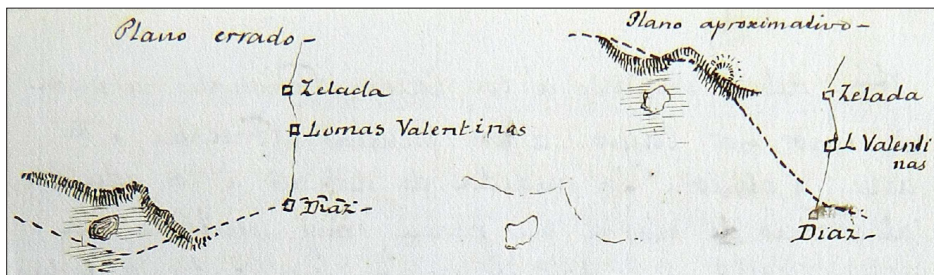 Plano errado -
Zelada
Lomas Valentinas
Diaz -
Plano aproximativo -
Zelada
L Valenti
nas
Diaz -